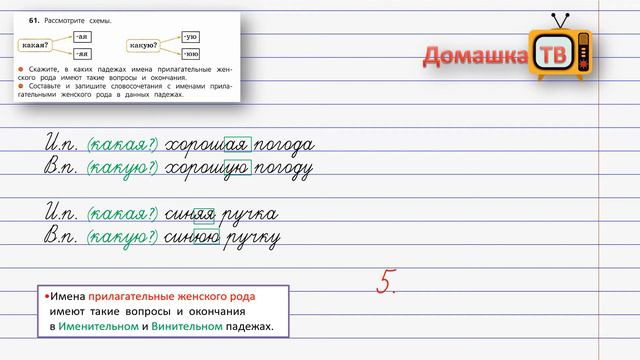 61. Рассмотрите схемы.
какая? -ая -яя
какую? -ую -юю
Скажите, в каких падежах имена прилагательные жен-
ского рода имеют такие вопросы и окончания.
Составьте и запишите словосочетания с именами прила-
гательными женского рода в данных падежах.
Домашка ТВ
И.п. (какая?) хорошая погода
В.п. (какую?) хорошую погоду
И.п. (какая?) синяя ручка
В.п. (какую?) синюю ручку
5.
•Имена прилагательные женского рода
имеют такие вопросы и окончания
в Именительном и Винительном падежах.